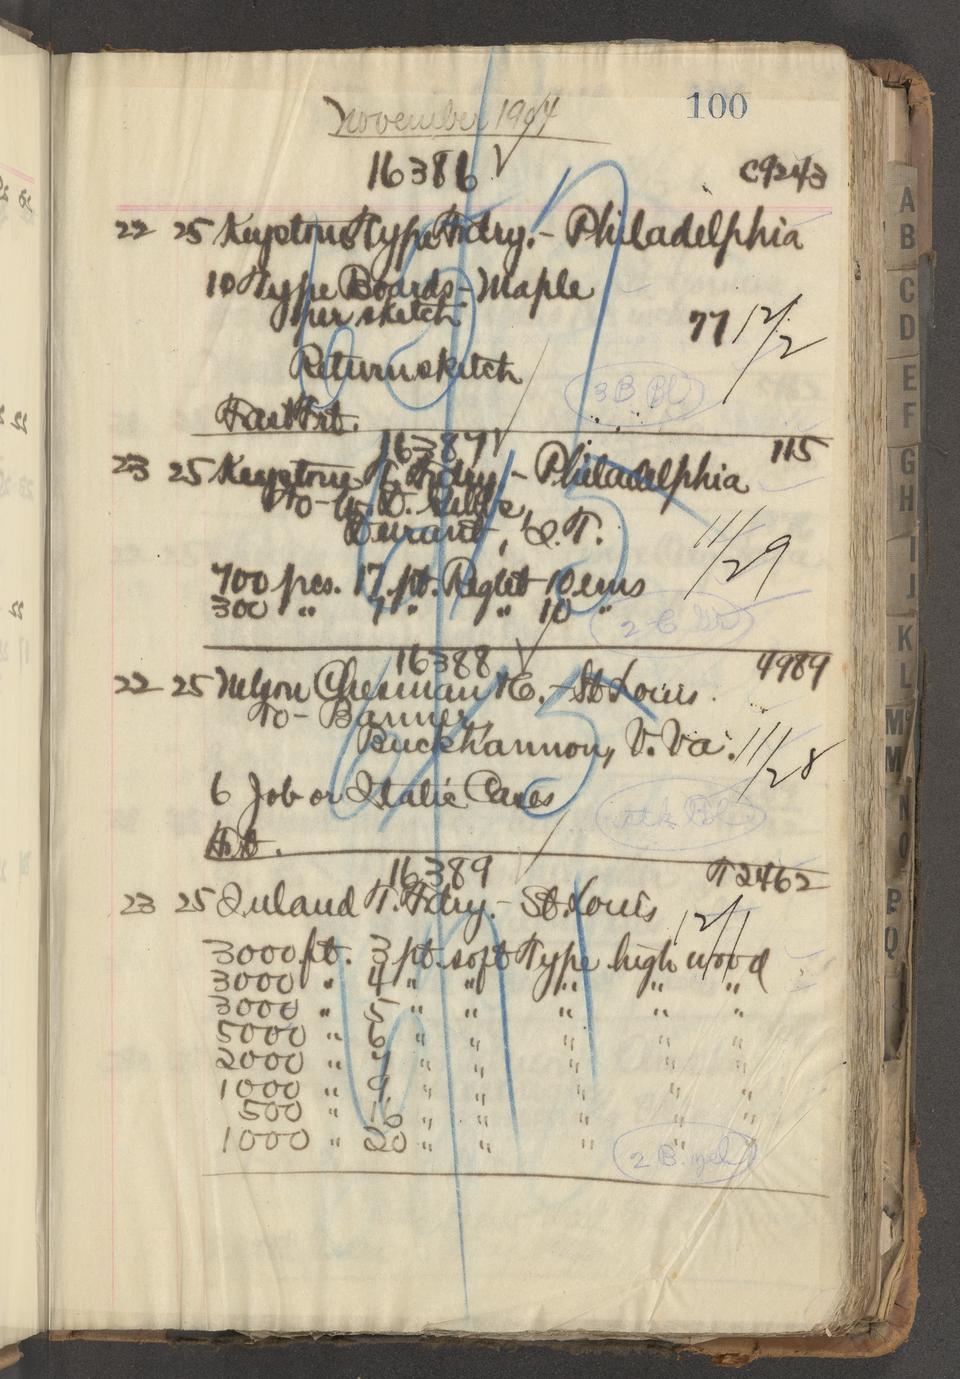 100
November 1904
16386 C9243
22 25 Keystone Type Fdry. - Philadelphia
10 Type Boards - Maple
per sketch 77 12/2
Return sketch
3 B Bl
Fast Frt.
16387 115
23 25 Keystone T. Fdry - Philadelphia
To - W. D.
Durant, I. T. 11/29
700 pcs. 17 pt. Reglet 10 ems
300 " 7 " " 10 "
2 C
16388 4989
22 25 Nelson Chesman & Co. - St Louis
To - Banner,
Buckhannon, V. Va. 11/28
6 Job or Italic Cases
16389 T2462
23 25 Inland T. Fdry. - St. Louis 12/1
3000 ft. 3 pt. soft Type high wood
3000 " 4 " " " " "
3000 " 5 " " " " "
5000 " 6 " " " " "
2000 " 7 " " " " "
1000 " 9 " " " " "
500 " 16 " " " " "
1000 " 20 " " " " "
2 B
A
B
C
D
E
F
G
H
I
J
K
L
Mc
M
N
O
P
Q